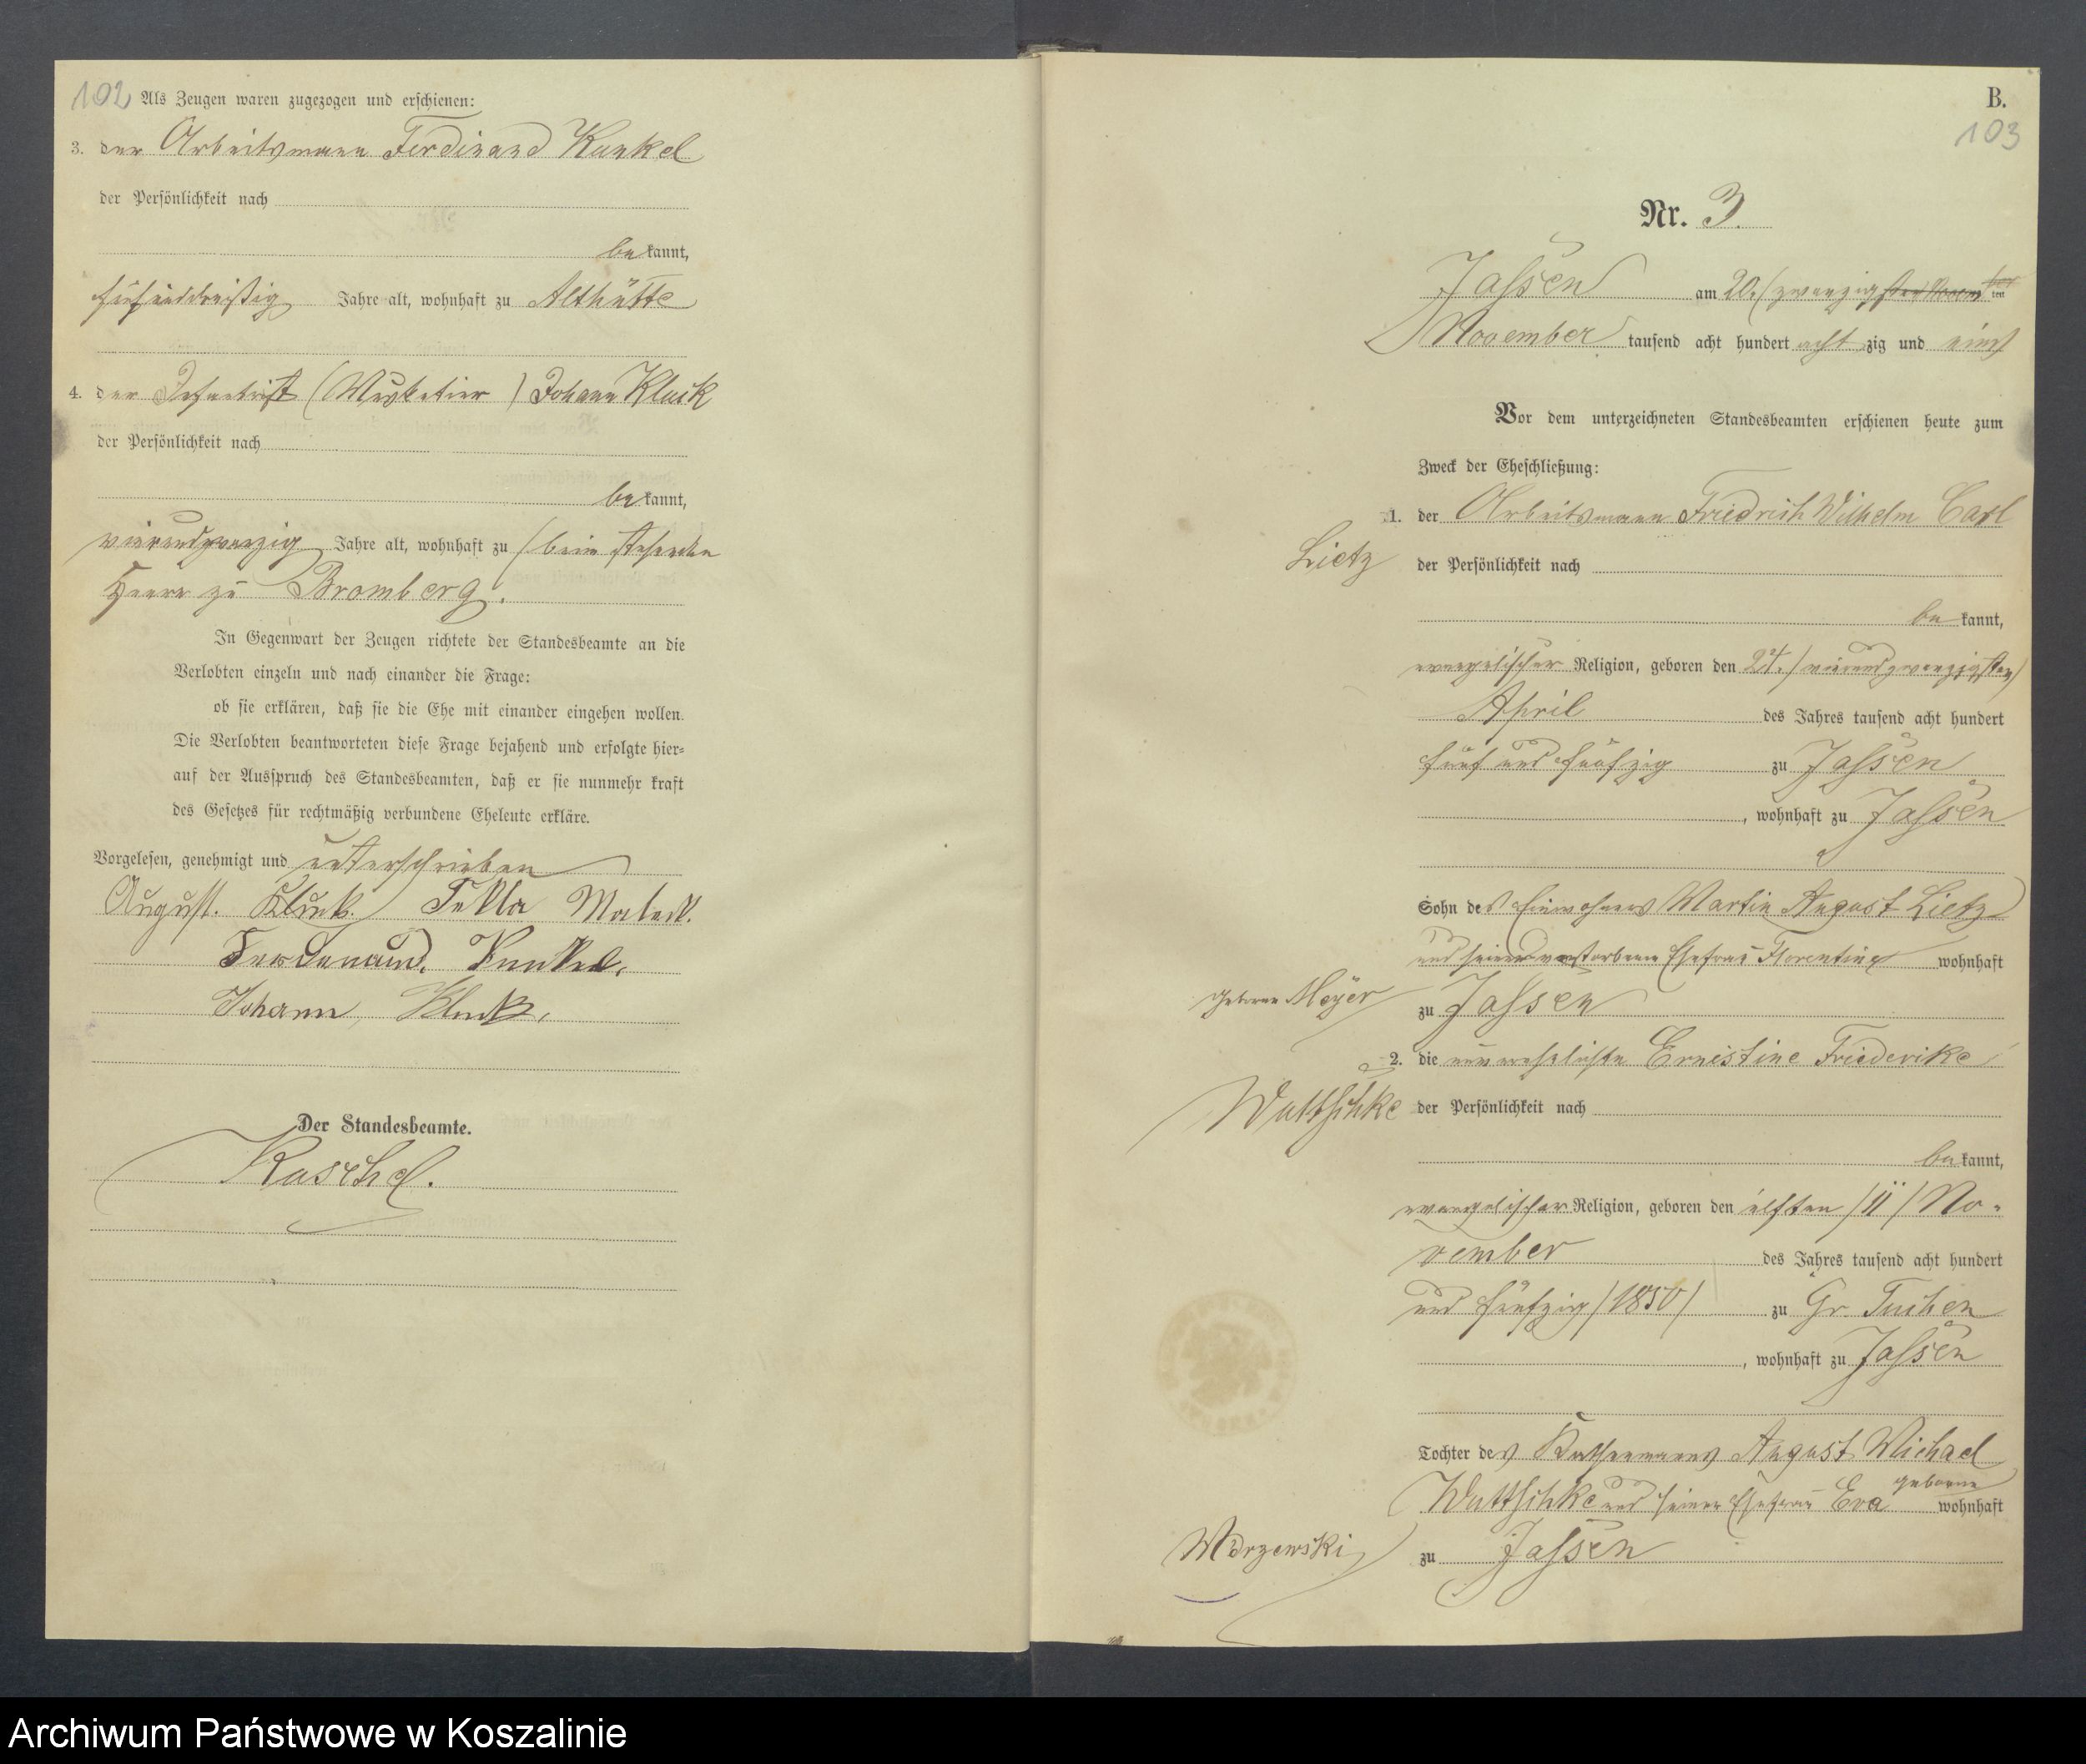 102 Als Zeugen waren zugezogen und erschienen:
3. der Arbeitsmann Ferdinand Kunkel
der Persönlichkeit nach
bekannt,
fünfunddreißig Jahre alt, wohnhaft zu Althütte
4. der Infantrist (Musketier) Johann Kluck
der Persönlichkeit nach
bekannt,
vierundzwanzig Jahre alt, wohnhaft zu (beim stehenden
Heere zu Bromberg.
In Gegenwart der Zeugen richtete der Standesbeamte an die
Verlobten einzeln und nach einander die Frage:
ob sie erklären, daß sie die Ehe mit einander eingehen wollen.
Die Verlobten beantworteten diese Frage bejahend und erfolgte hier-
auf der Ausspruch des Standesbeamten, daß er sie nunmehr kraft
des Gesetzes für rechtmäßig verbundene Eheleute erkläre.
Vorgelesen, genehmigt und unterschrieben
August. Kluck. Tekla
Ferdenand. Kunkel.
Johann Kluck.
Der Standesbeamte.
Kaschel.
B.
103
Nr. 3.
Jassen am 20. (zwanzigsten
November tausend acht hundert achtzig und eins
Vor dem unterzeichneten Standesbeamten erschienen heute zum
Zweck der Eheschließung:
1. der Arbeitsmann Friedrich Wilhelm Carl
Lietz der Persönlichkeit nach
bekannt,
evangelischer Religion, geboren den 24. (vierundzwanzigsten)
April des Jahres tausend acht hundert
fünf und fünfzig zu Jassen
, wohnhaft zu Jassen
Sohn des Einwohners Martin August Lietz
und seiner verstorbenen Ehefrau Florentine wohnhaft
geborene Meyer zu Jassen
2. die unverehelichte Ernestine Friederike
Wuttschke der Persönlichkeit nach
bekannt,
evangelischer Religion, geboren den elften /11/ No-
vember des Jahres tausend acht hundert
und fünfzig /1850/ zu Gr. Tuchen
, wohnhaft zu Jassen
Tochter des Kathenmanns August Michael
Wuttschke und seiner Ehefrau Eva geborene wohnhaft
Worzewski zu Jassen
Archiwum Państwowe w Koszalinie